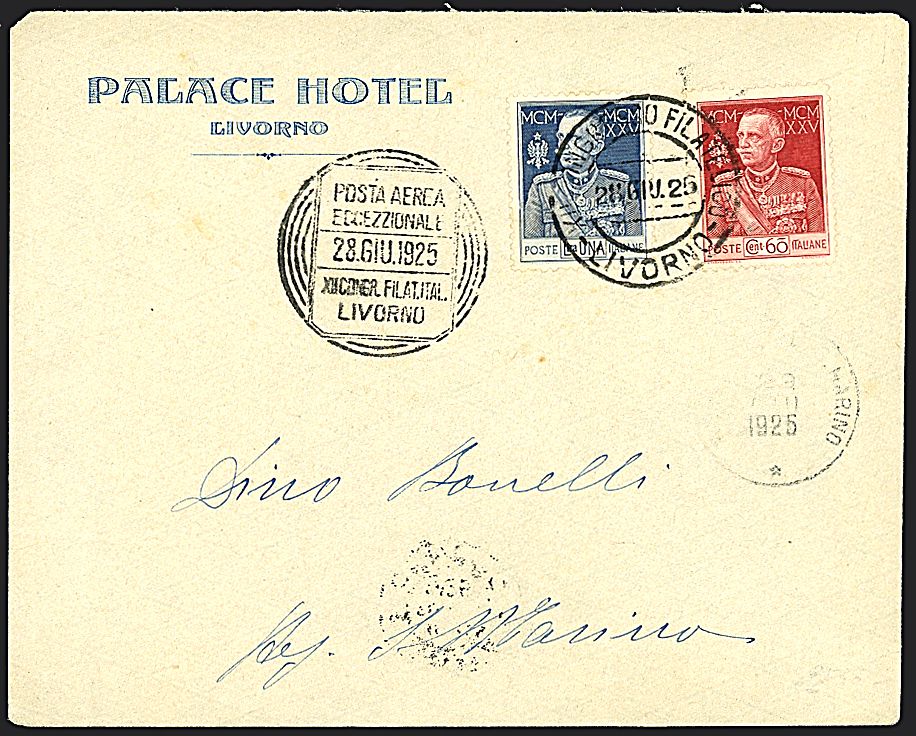 PALACE HOTEL
LIVORNO
POSTA AEREA
ECCEZZIONALE
28.GIU.1925
XII CONGR. FILAT. ITAL.
LIVORNO
MCM MCM
XXV
POSTE Lire UNA ITALIANE
FILATELICO
28.GIU.25
LIVORNO
MCM MCM
XXV
POSTE Cent 60 ITALIANE
MARINO
1925
*
Dino Bonelli
Rep. S. Marino